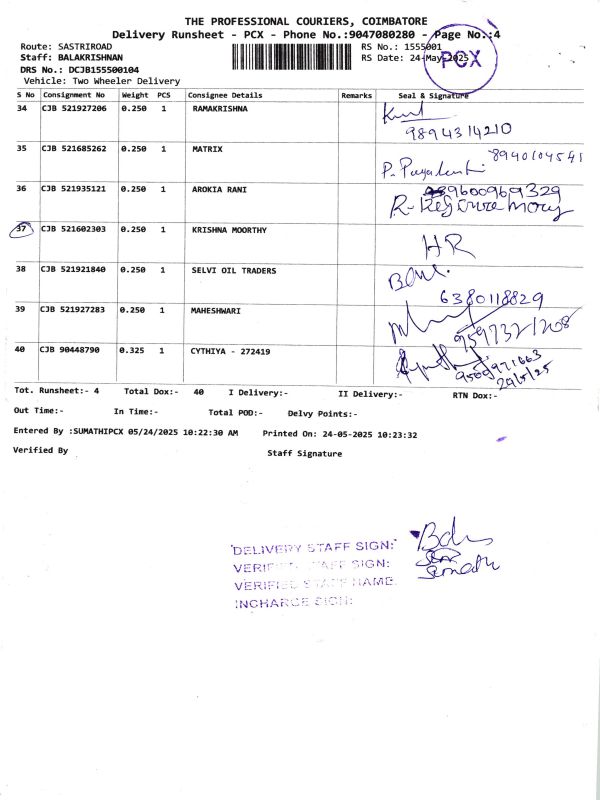 THE PROFESSIONAL COURIERS, COIMBATORE
Delivery Runsheet - PCX - Phone No.:9047080280 - Page No.:4
Route: SASTRIROAD RS No.: 1555001
Staff: BALAKRISHNAN RS Date: 24-May-2025
PCX
DRS No.: DCJB155500104
Vehicle: Two Wheeler Delivery
S No Consignment No Weight PCS Consignee Details Remarks Seal & Signature
34 CJB 521927206 0.250 1 RAMAKRISHNA
9894314210
35 CJB 521685262 0.250 1 MATRIX
8940104541
36 CJB 521935121 0.250 1 AROKIA RANI
9600969329
37 CJB 521602303 0.250 1 KRISHNA MOORTHY
HR
38 CJB 521921840 0.250 1 SELVI OIL TRADERS
6380118829
39 CJB 521927283 0.250 1 MAHESHWARI
40 CJB 90448790 0.325 1 CYTHIYA - 272419
29/5/25
Tot. Runsheet:- 4 Total Dox:- 40 I Delivery:- II Delivery:- RTN Dox:-
Out Time:- In Time:- Total POD:- Delvy Points:-
Entered By :SUMATHIPCX 05/24/2025 10:22:30 AM Printed On: 24-05-2025 10:23:32
Verified By Staff Signature
DELIVERY STAFF SIGN:
VERIFIED STAFF SIGN:
VERIFIED STAFF NAME:
INCHARGE SIGN: